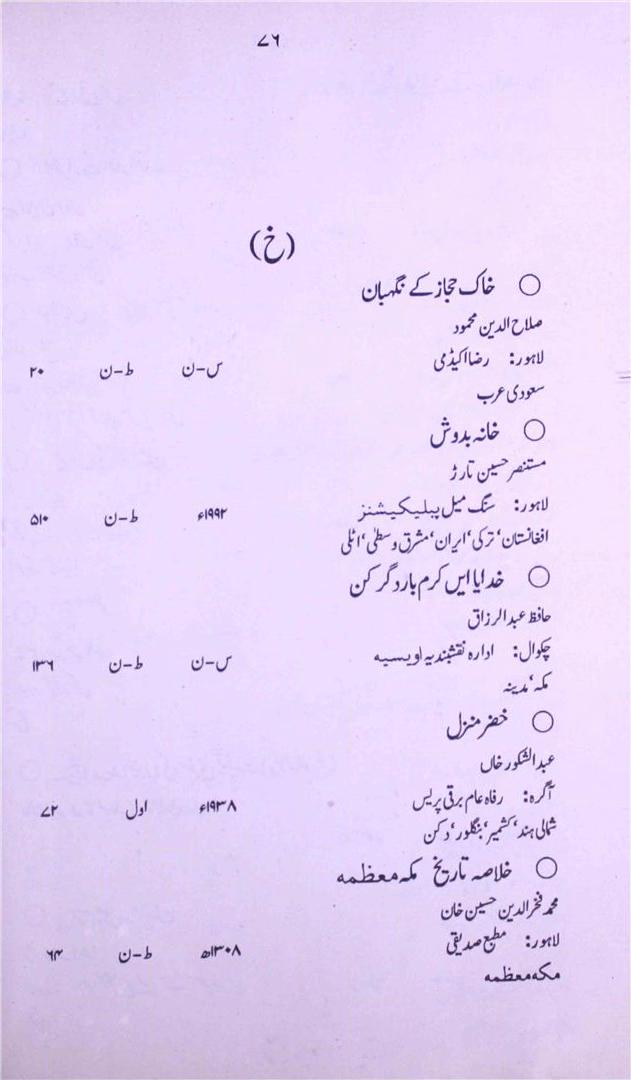 ۷۶
(خ)
خاک حجاز کے نگہبان
صلاح الدین محمود
لاہور: رضا اکیڈمی س-ن ط-ن ۲۰
سعودی عرب
خانہ بدوش
مستنصر حسین تارڑ
لاہور: سنگ میل پبلیکیشنز ۱۹۹۲ء ط-ن ۵۱۰
افغانستان، ترکی، ایران، مشرق وسطیٰ، اٹلی
خدایا ایں کرم بار دگر کن
حافظ عبدالرزاق
چکوال: ادارہ نقشبندیہ اویسیہ س-ن ط-ن ۱۳۶
مکہ، مدینہ
خضر منزل
عبدالشکور خاں
آگرہ: رفاہ عام برقی پریس ۱۹۳۸ء اول ۷۲
شمالی ہند، کشمیر، بنگلور، دکن
خلاصہ تاریخ مکہ معظمہ
محمد فخر الدین حسین خان
لاہور: مطبع صدیقی ۱۳۰۸ھ ط-ن ۶۴
مکہ معظمہ